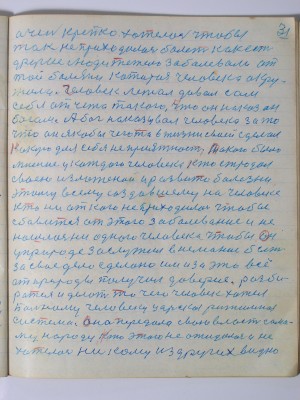 31
а чем крепко хотелось чтобы
так не приходилося болеть как ет
древнее люди тяжко заболевали от
той болезни которая человека окру-
жила. Человек лежал давал сам
себя от чего такого, что он наказан
богами. А бог наказывал человека за то
что он якобы чего то в жизни своей сделал
Какую для себя неприятность, Такого было
мнение у каждого человека кто страдал
своею изложеной и развитой болезни
этому всему создавшему на человеке
кто ни от кого не приходилося чтобы
сбавится от этого заболевания и не
нашлося ни одного человека чтобы Он
у природе заслужил внимание больн
за свое дело сделано им и за это всё
от природы получил доверие. разби-
ратся и делать то чего человек хотел
Потому человеку царская
система. Она передала свою власть само-
му народу Кто этого не ожидал и не
хотелось ни кому из других видно